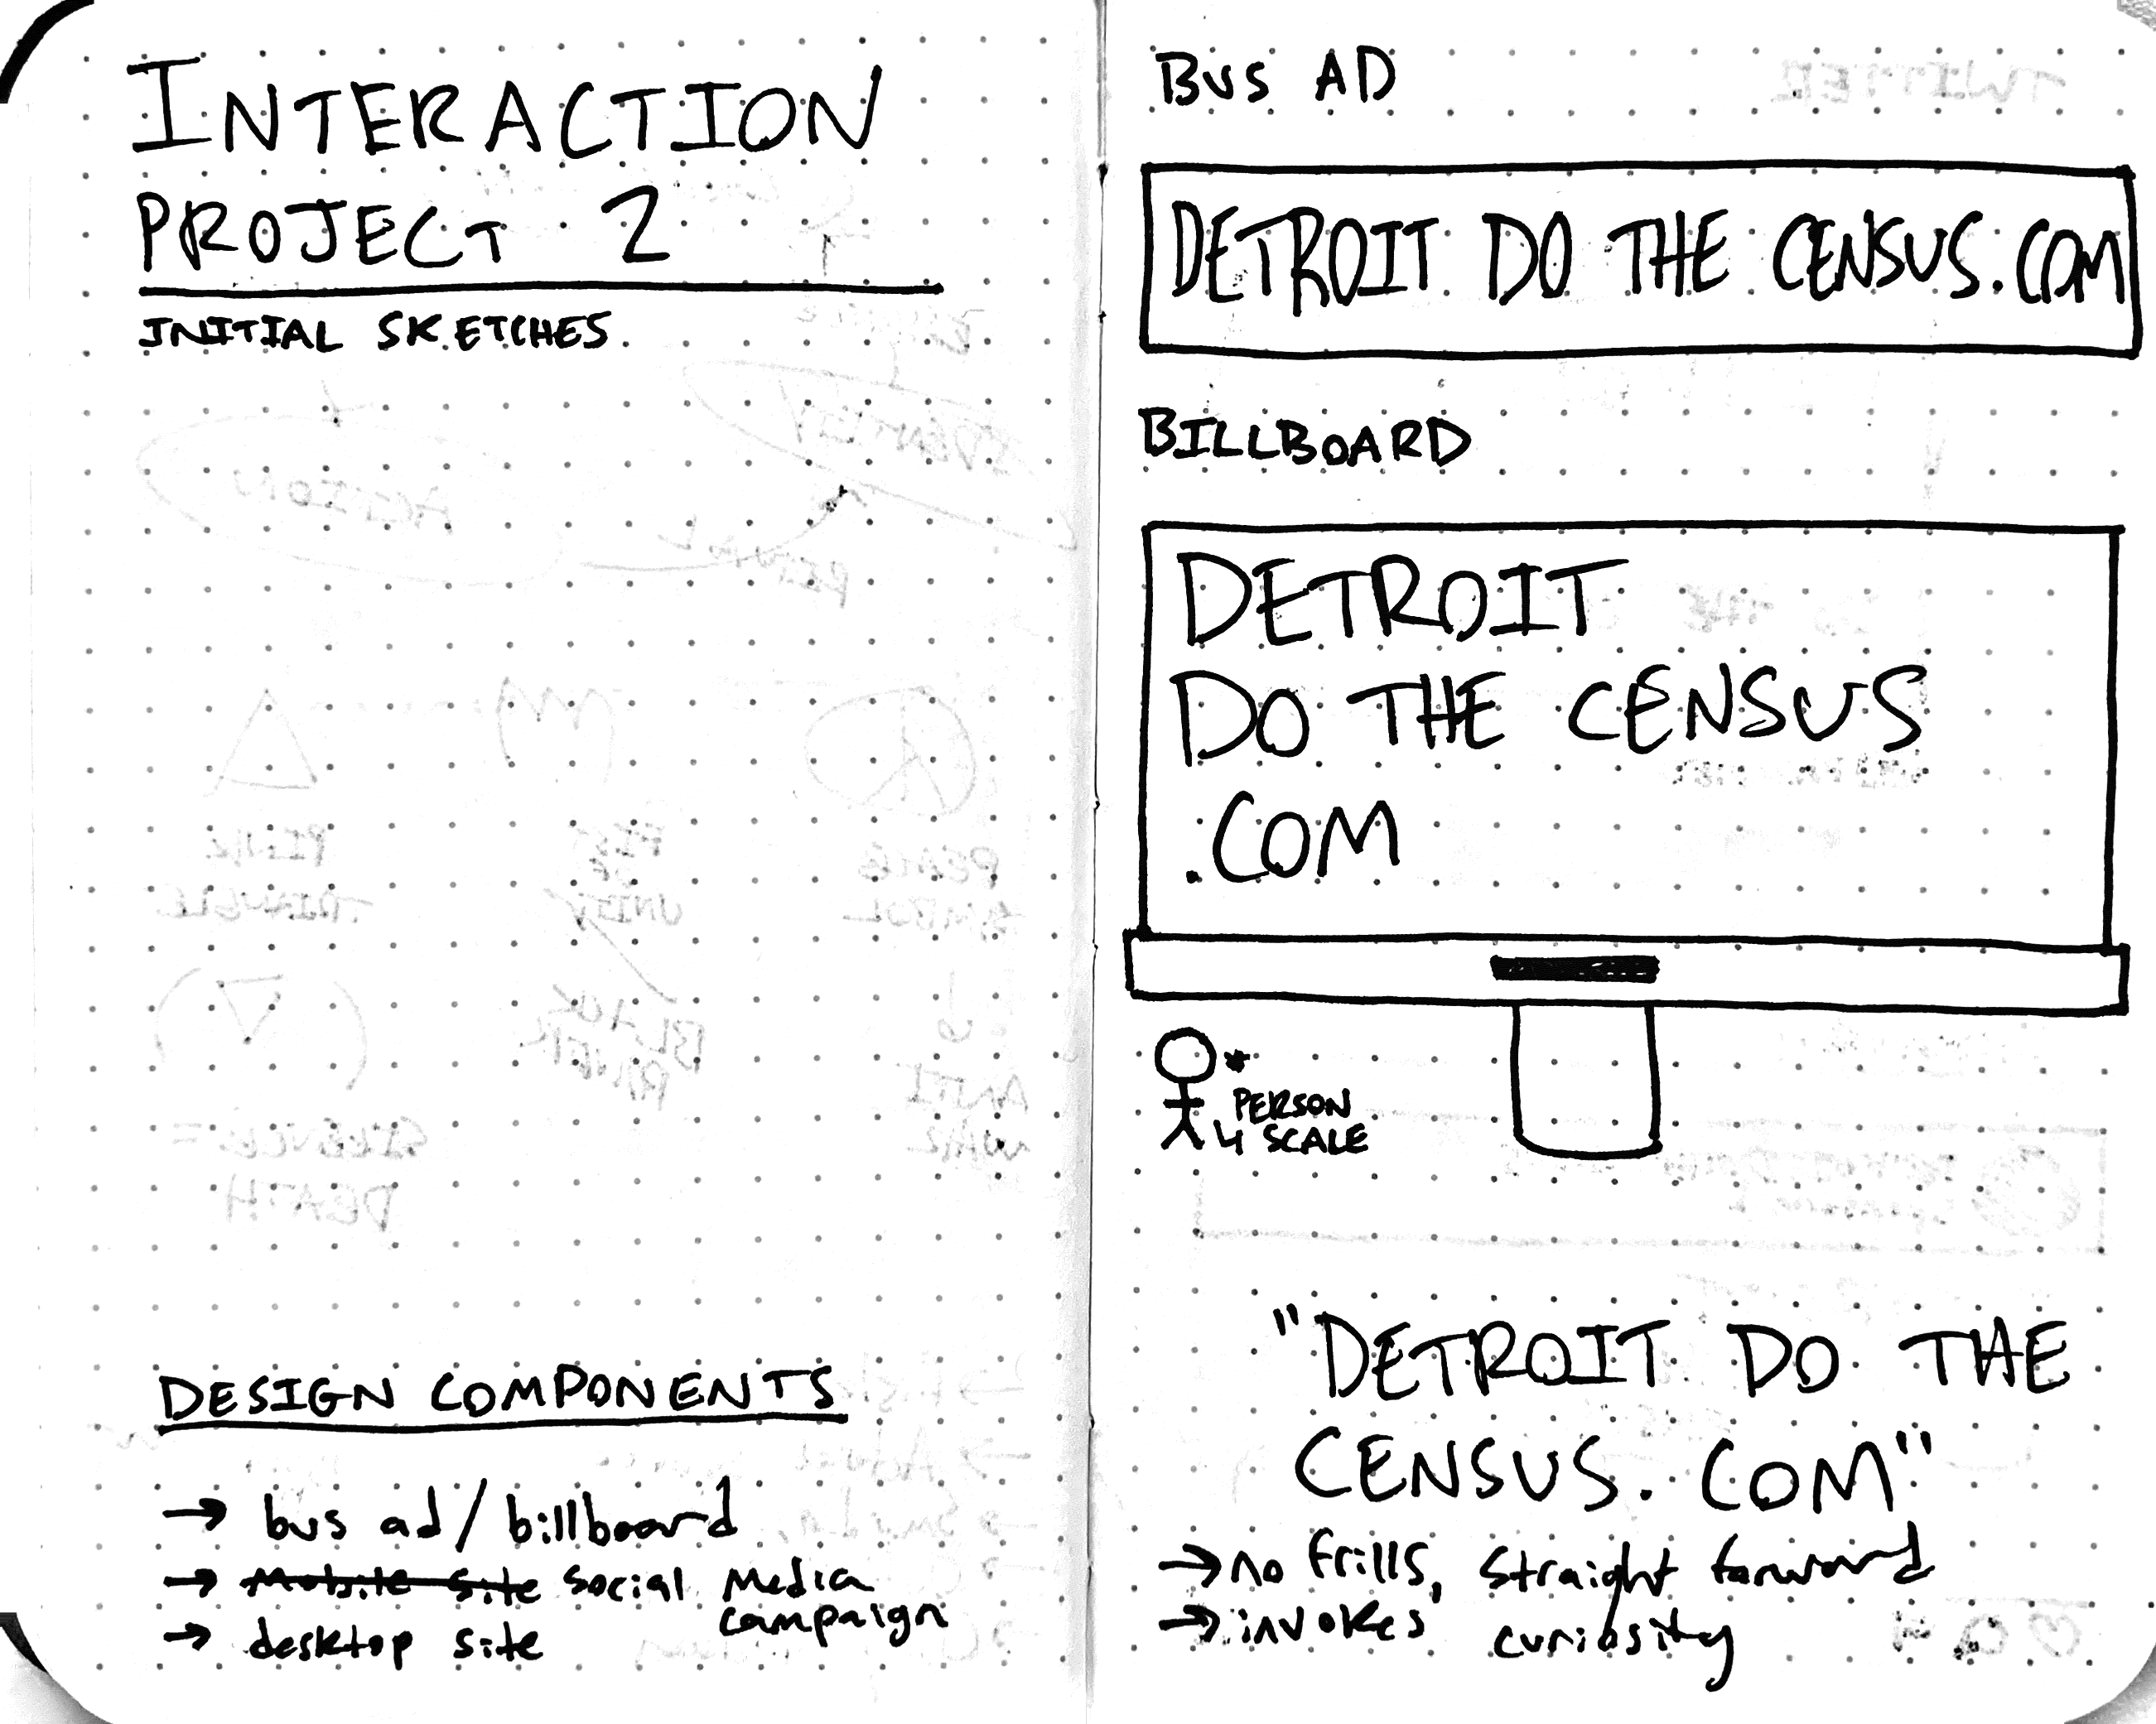 INTERACTION
PROJECT 2
INITIAL SKETCHES
DESIGN COMPONENTS
→ bus ad/billboard
→ Mobile site social media
campaign
→ desktop site
BUS AD
DETROIT DO THE CENSUS.COM
BILLBOARD
DETROIT
DO THE CENSUS
.COM
*
PERSON
4 SCALE
"DETROIT DO THE
CENSUS.COM"
→ no frills, straight forward
→ invokes curiosity